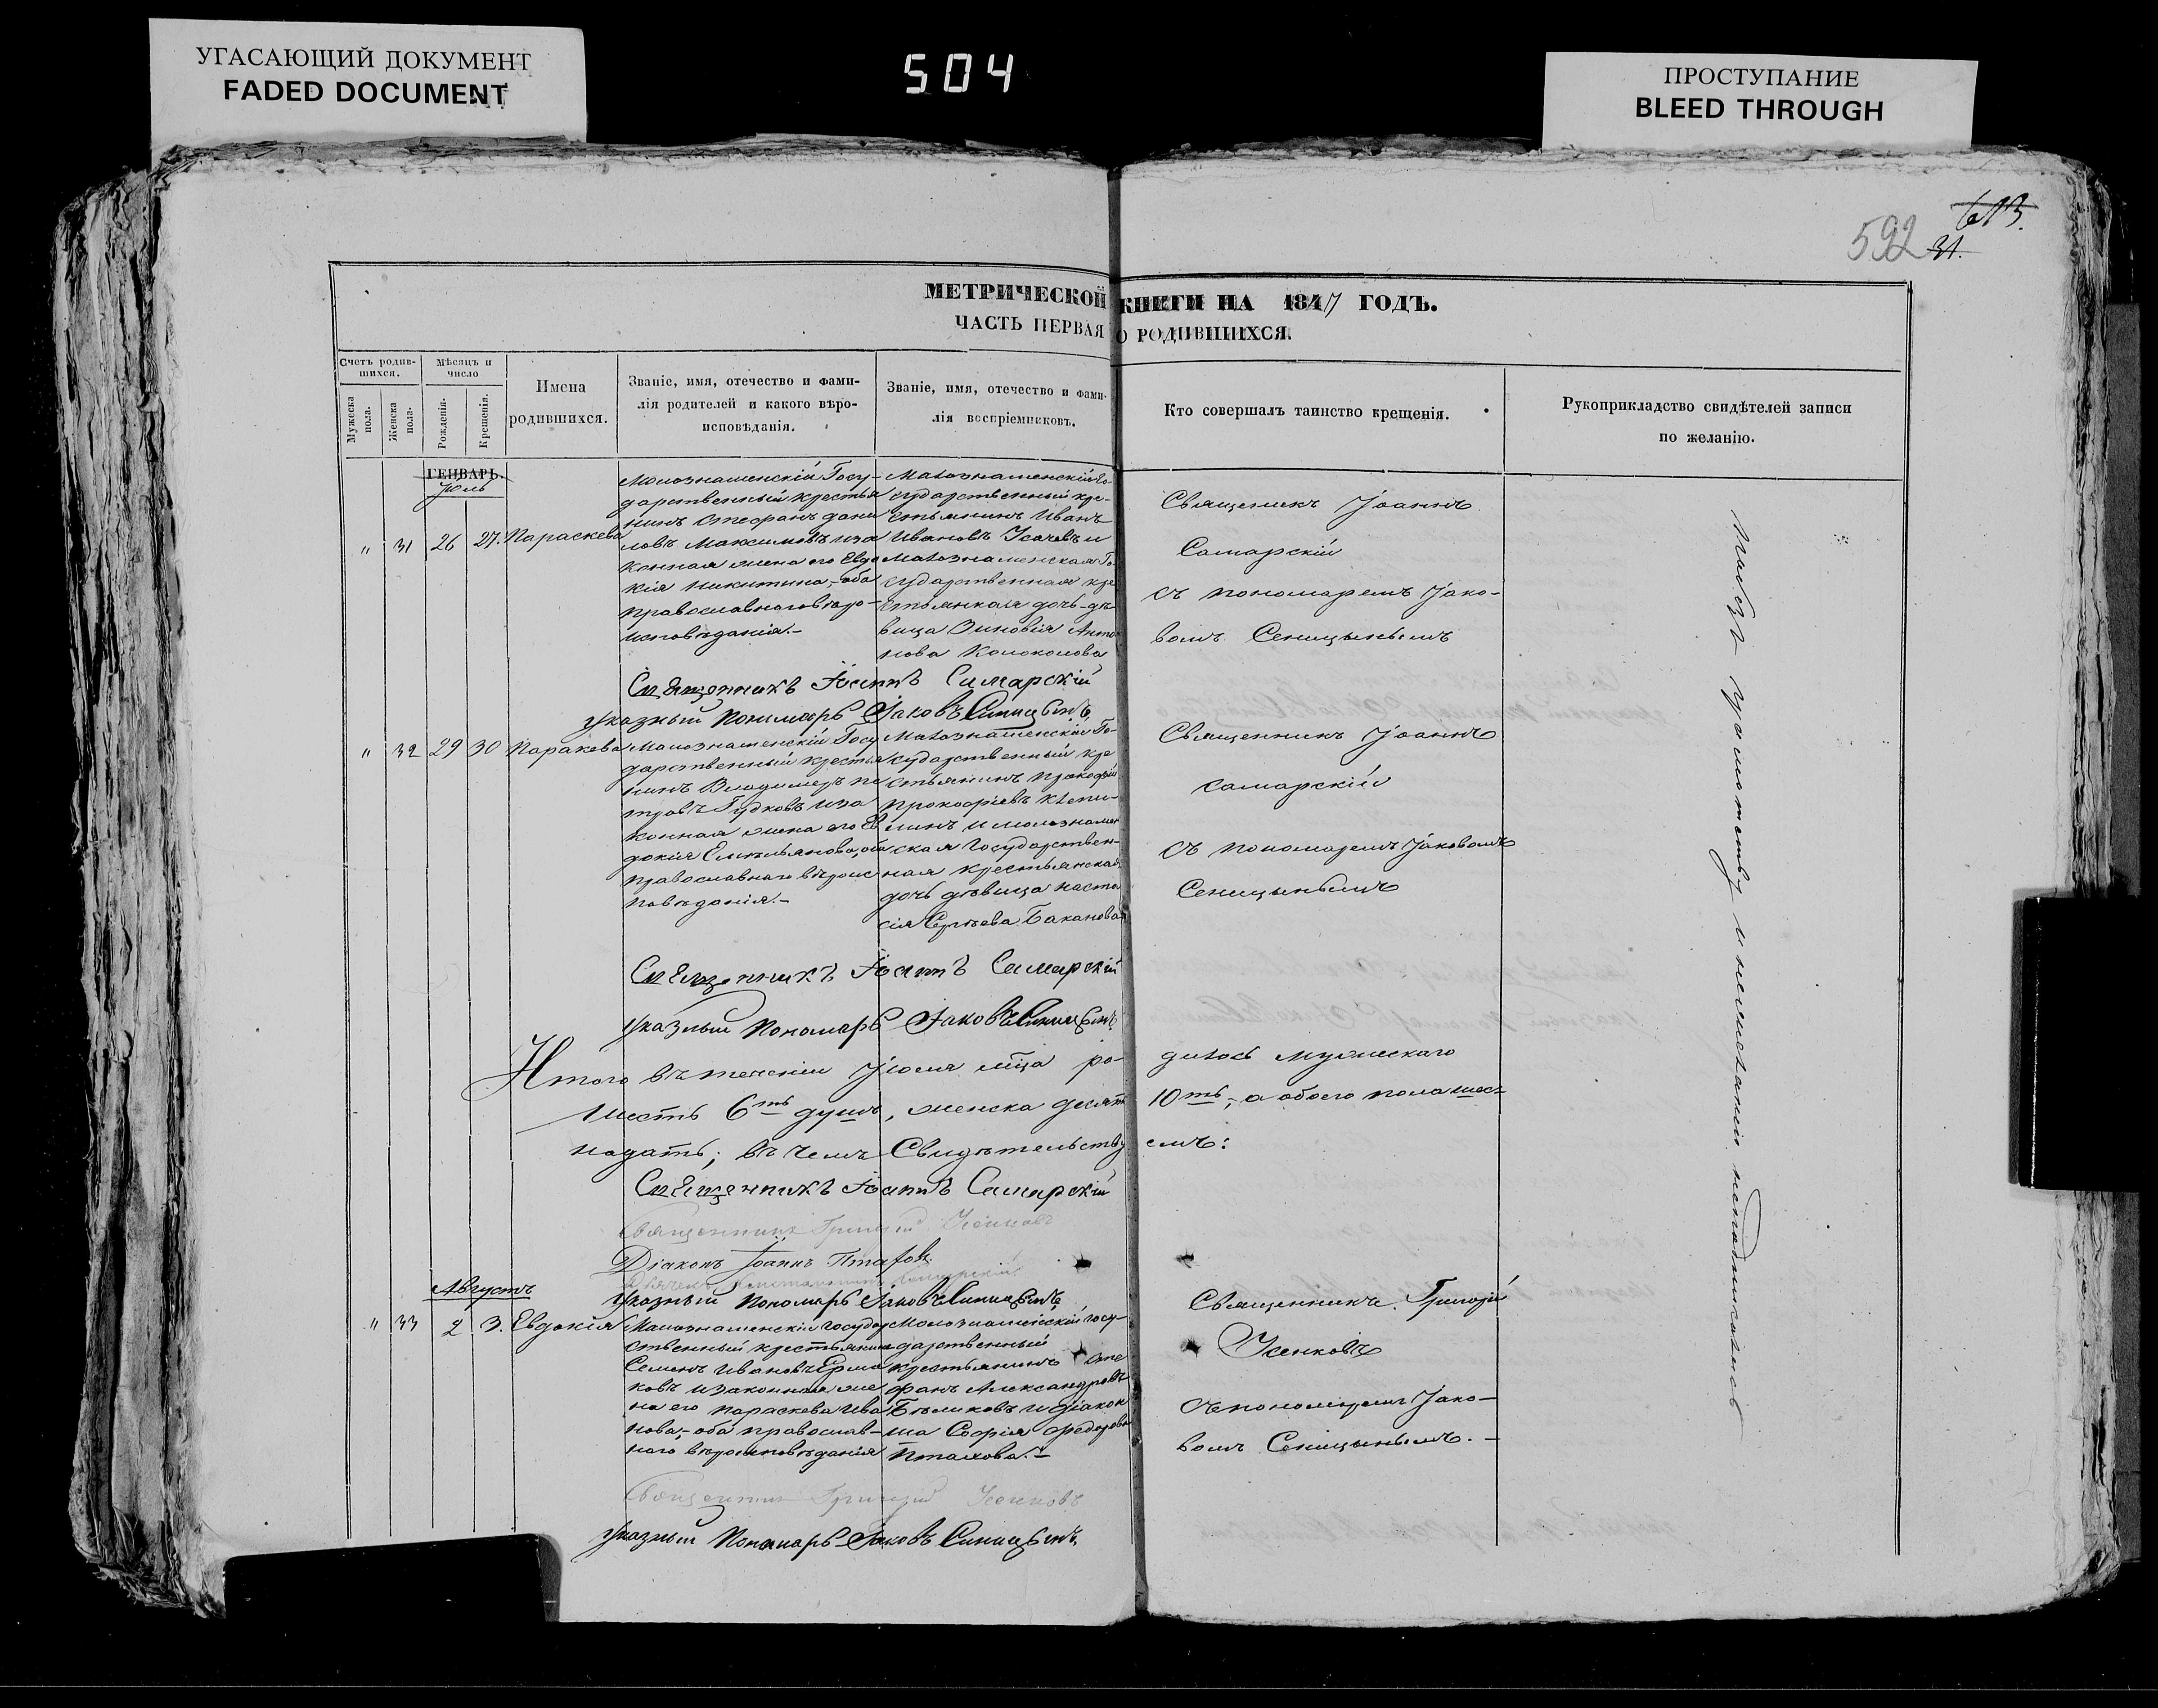 УГАСАЮЩИЙ ДОКУМЕНТ
FADED DOCUMENT
504
ПРОСТУПАНИЕ
BLEED THROUGH
613.
592 31.
МЕТРИЧЕСКОЙ КНИГИ НА 1847 ГОДЪ.
ЧАСТЬ ПЕРВАЯ О РОДИВШИХСЯ.
Счетъ родив-
шихся.
Мужеска
пола.
Женска
пола.
Мѣсяцъ и
число
Рожденія.
Крещенія.
Имена
родившихся.
Званіе, имя, отечество и фами-
лія родителей и какого вѣро-
исповѣданія.
Званіе, имя, отечество и фами-
лія воспріемниковъ.
Кто совершалъ таинство крещенія.
Рукоприкладство свидѣтелей записи
по желанію.
ГЕНВАРЬ.
Юль
" 31 26 27. Параскева
Малознаменскій Госу-
дарственный крестья
нинъ Стефанъ Дани
ловъ Максимовъ иза
конная жена его Евдо
кія Никитина, оба
православнаго вѣро-
исповѣданія.-
Малознаменскій Го-
сударственный кре-
стьянинъ Иванъ
Ивановъ Усачевъ и
Малознаменская Го-
сударственная кре
стьянская дочь-дѣ
вица Зиновія Анто
нова Колоколова
Священикъ Іоаннъ
Самарскій
съ пономаремъ Іако-
вомъ Сеницынымъ
Священникъ Іоаннъ Самарскій
Указный Пономарь Іаковъ Синицынъ
" 32 29 30 Паракева
Малознаменскій Госу
дарственный крестья
нинъ Владимеръ Пе
тровъ Гудковъ иза
конная жена его Ев
докія Емельянова, оба
православнаго вѣроис
повѣданія.-
Малознаменскій Го-
сударственный кре
стьянинъ Прокофій
Прокофіевъ
линъ и малознамен
ская Государствен-
ная крестьянская
дочь дѣвица Наста
сія Сергѣева Баканова
Священникъ Іоаннъ
Самарскій
съ пономаремъ Іаковомъ
Сеницынымъ
Священникъ Іоаннъ Самарскій
Указный Пономарь Іаковъ Синицынъ
Итого въ теченіи Іюля мца ро- дилось мужескаго
шесть 6ть душъ, женска десять 10ть, а обоего пола шес-
надать; въ чемъ Свидѣтельствуемъ:
Священникъ Іоаннъ Самарскій
Священникъ Григорій Усенковъ
Діаконъ Іоаннъ Птахов
Указный Пономарь Іаковъ Синицынъ
Августъ
" 33 2 3. Евдокія
Малознаменскій государ
ственный крестьянинъ
Семенъ Ивановъ Ерма
ковъ и законная же
на его Параскева Ива
нова, оба православ-
наго вѣроисповѣданія
Малознаменскій госу-
дарственный
крестьянинъ Сте
фанъ Александровъ
Бѣликовъ и діакон
ша Софія Федорова
Птахова.-
Священникъ Григорій
Усенковъ
съ пономаремъ Іако-
вомъ Сеницынымъ.-
Священникъ Григорій Усенковъ
Указный Пономарь Іаковъ Синицынъ